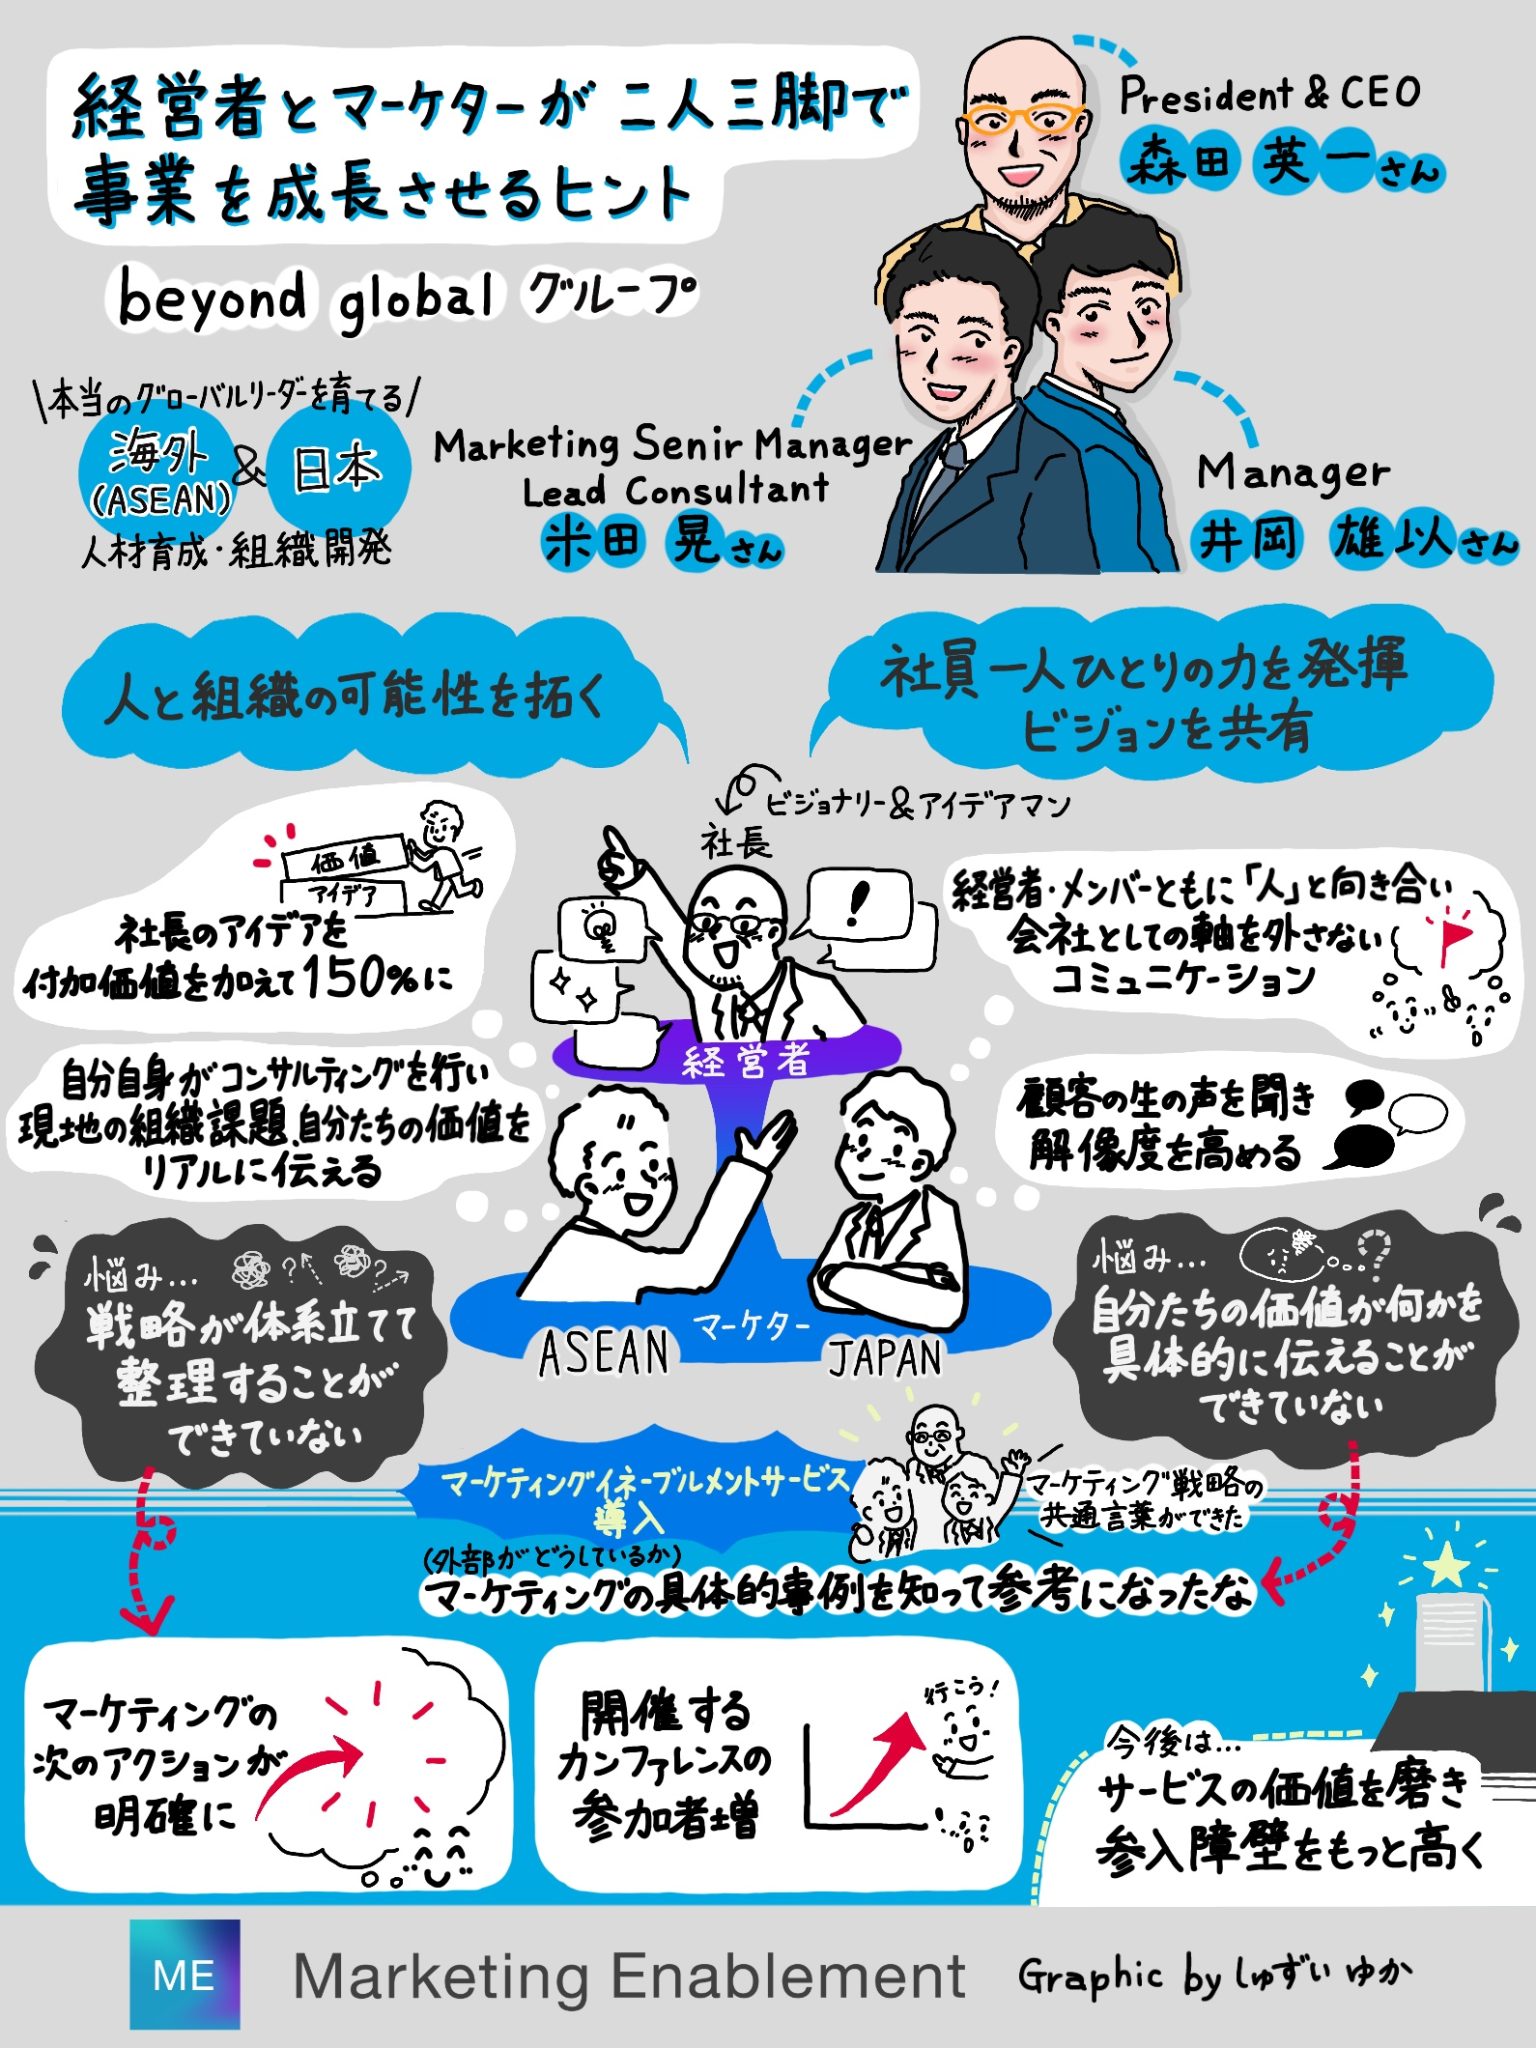 経営者とマーケターが二人三脚で
事業を成長させるヒント
beyond global グループ
President & CEO
森田 英一さん
\本当のグローバルリーダーを育てる/
海外
(ASEAN)
&
日本
人材育成・組織開発
Marketing Senir Manager
Lead Consultant
米田 晃さん
Manager
井岡 雄以さん
人と組織の可能性を拓く
社員一人ひとりの力を発揮
ビジョンを共有
ビジョナリー&アイデアマン
社長
価値
アイデア
社長のアイデアを
付加価値を加えて150%に
!
経営者・メンバーともに「人」と向き合い
会社としての軸を外さない
コミュニケーション
経営者
自分自身がコンサルティングを行い
現地の組織課題、自分たちの価値を
リアルに伝える
顧客の生の声を聞き
解像度を高める
悩み…
? ?
戦略が体系立てて
整理することが
できていない
悩み…
?
自分たちの価値が何かを
具体的に伝えることが
できていない
マーケター
ASEAN
JAPAN
マーケティングイネーブルメントサービス
導入
マーケティング戦略の
共通言葉ができた
(外部がどうしているか)
マーケティングの具体的事例を知って参考になったな
マーケティングの
次のアクションが
明確に
開催する
カンファレンスの
参加者増
行こう!
今後は…
サービスの価値を磨き
参入障壁をもっと高く
ME
Marketing Enablement
Graphic by しゅずい ゆか